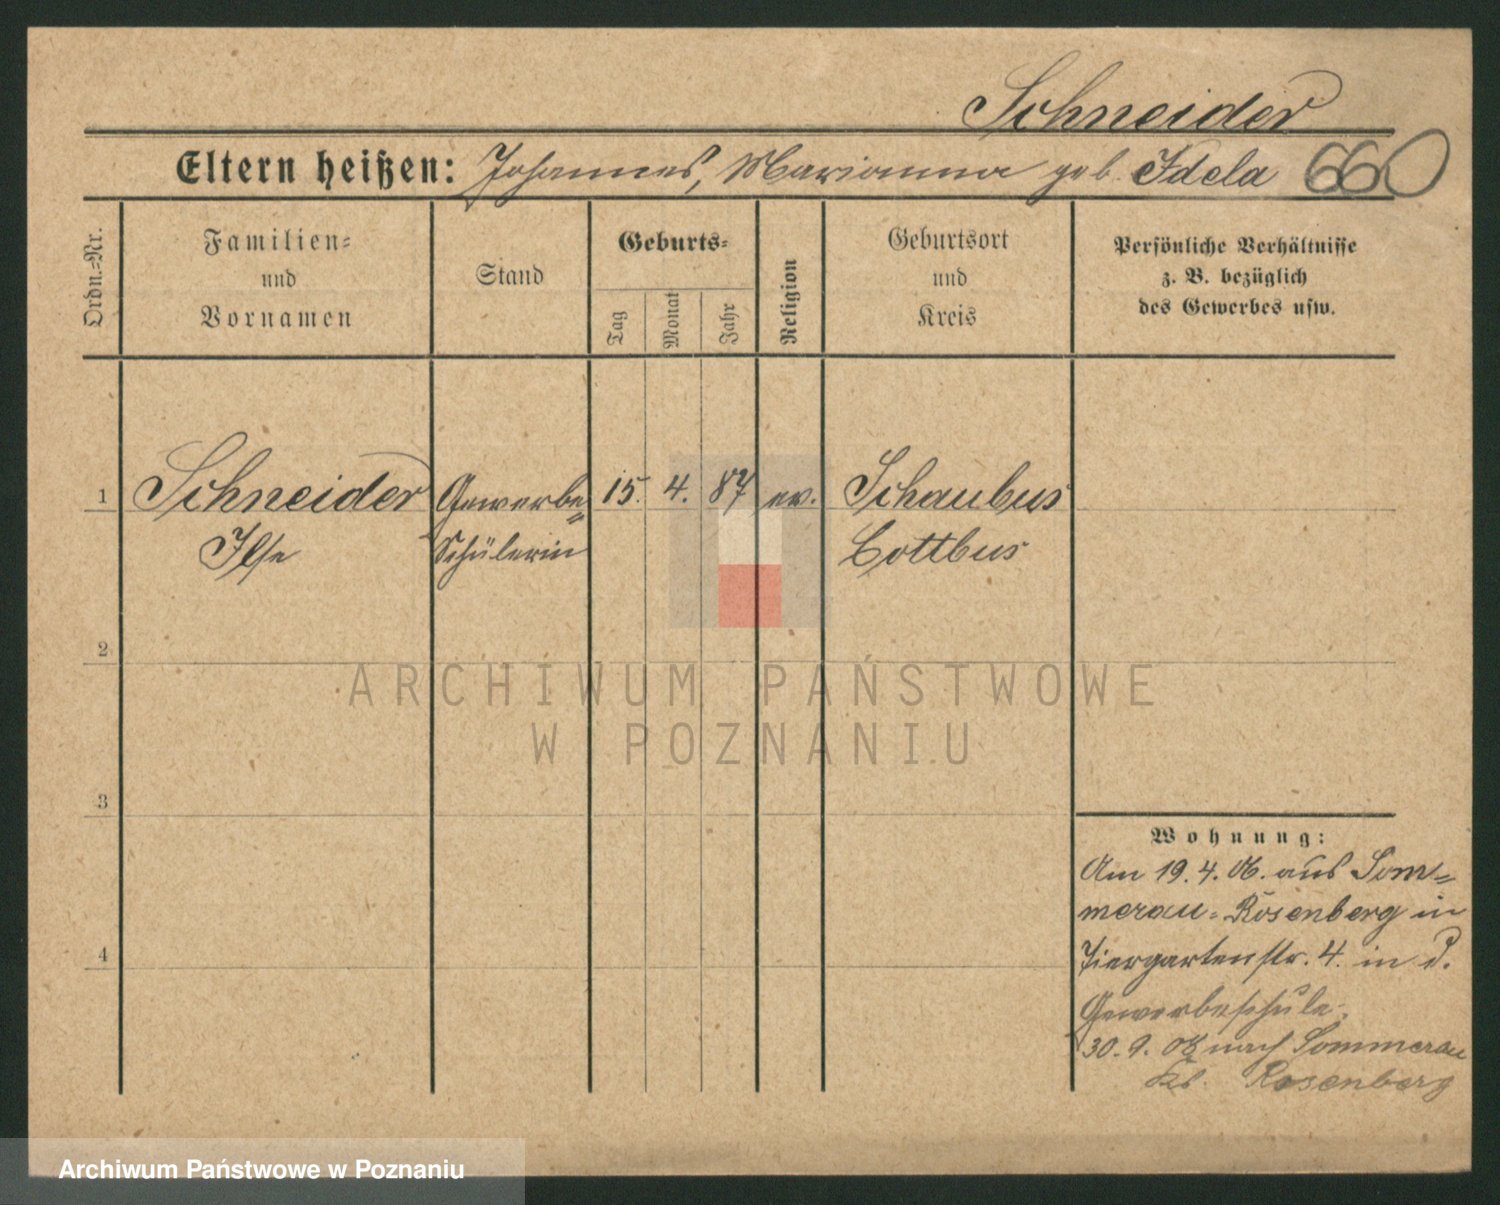 Schneider
Eltern heißen: Johannes, Marianna geb. Idela 660
Ordn.-Nr.
Familien-
und
Vornamen
Stand
Geburts-
Tag
Monat
Jahr
Religion
Geburtsort
und
Kreis
Persönliche Verhältnisse
z. B. bezüglich
des Gewerbes usw.
1 Schneider Gewerbe= 15. 4. 87 ev. Schaubus
Ilse Schülerin Cottbus
2
ARCHIWUM PAŃSTWOWE
W POZNANIU
3
Wohnung:
Am 19. 4. 06. aus Som=
merau=Rosenberg in
Tiergartenstr. 4. in d.
Gewerbeschule.
4
30. 9. nach Sommerau
Rosenberg
Archiwum Państwowe w Poznaniu